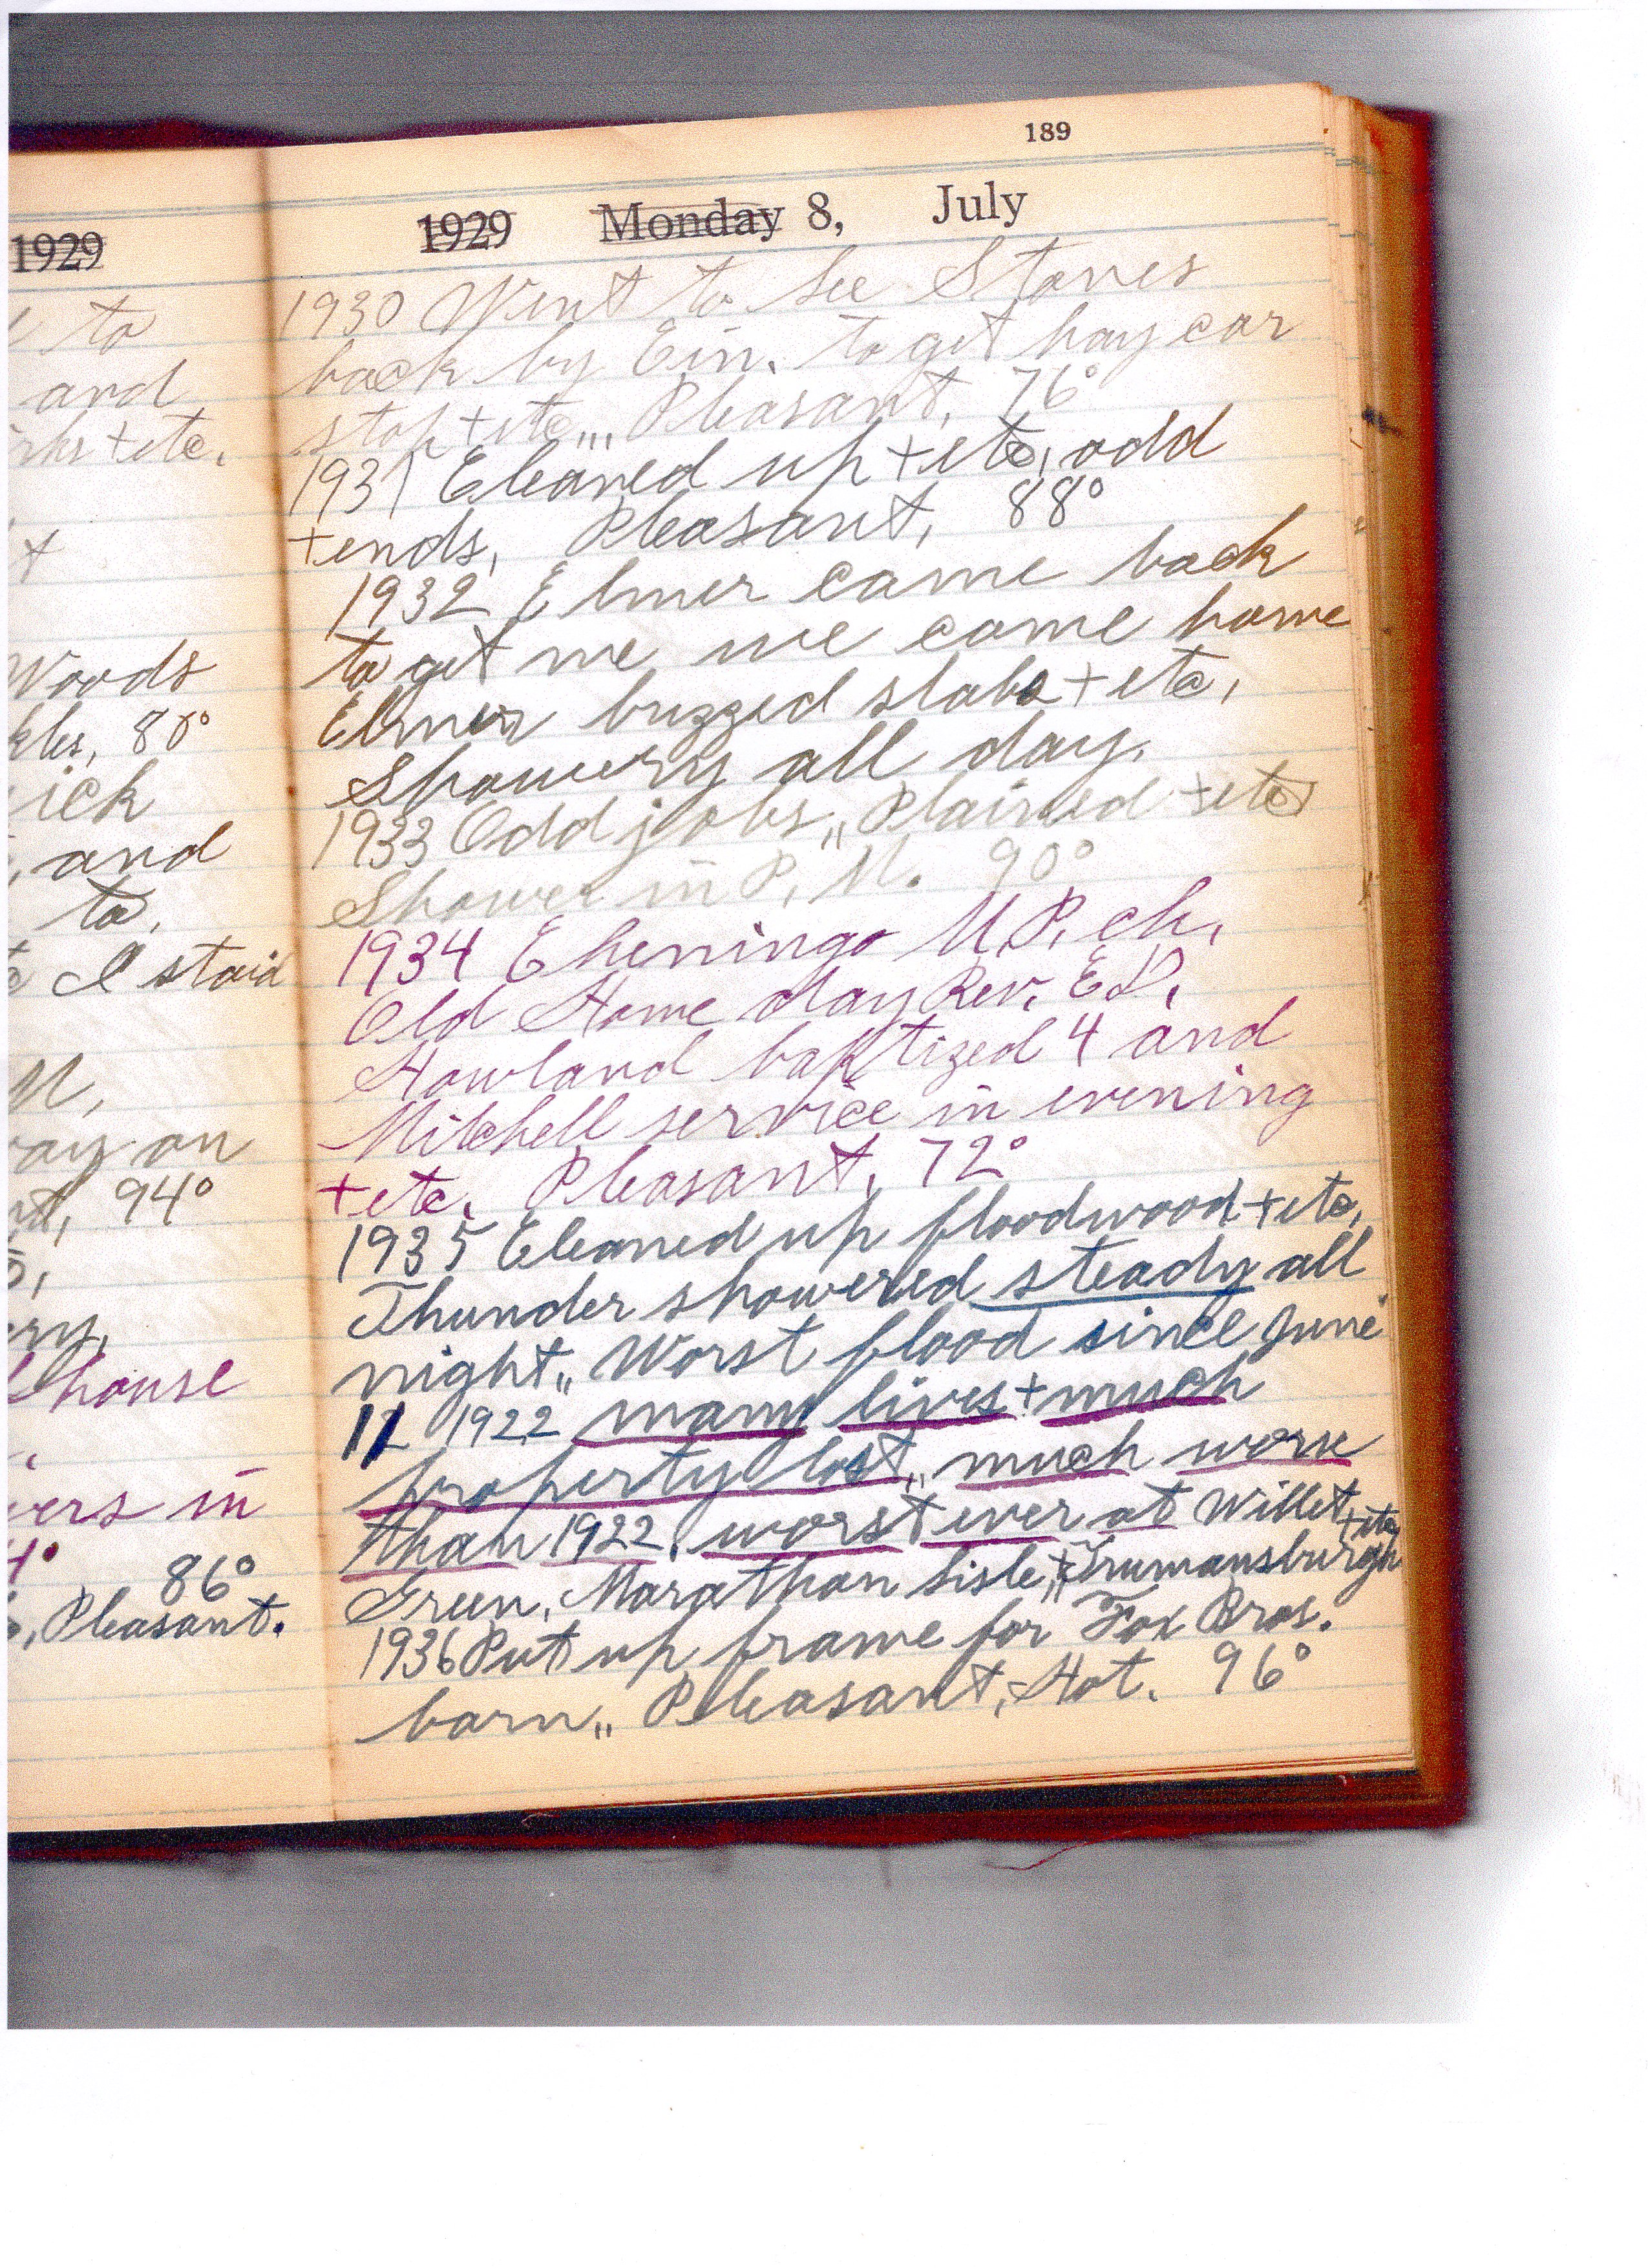 189
1929
1929 Monday 8, July
to
and
+ etc.
Woods
80°
ick
, and
to,
I staid
M,
on
94°
house
in
86°
, Pleasant.
1930 Went to see Stores
back by Cin. to get hay car
stop + etc,,, Pleasant, 76°
1931 Cleaned up + etc, odd
+ ends, Pleasant, 88°
1932 Elmer came back
to get me we came home
Elmer buzzed slabs + etc,
Showery all day.
1933 Odd jobs,, Plained + etc
Shower in P, M. 90°
1934 Cheningo M, P, ch,
Old Home day Rev. E D,
Howland baptized 4 and
Mitchell service in evening
+ etc. Pleasant, 72°
1935 Cleaned up floodwood + etc,
Thunder showered steady all
night,, Worst flood since June
11 1922 many lives + much
property lost,, much worse
than 1922, worst ever at Willet + etc
Green, Marathon Lisle,, + Trumansburgh
1936 Put up frame for Fox Bros.
barn,, Pleasant, Hot. 96°